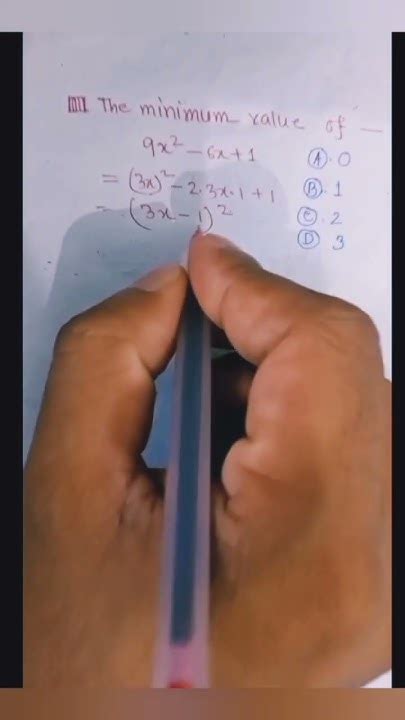 The minimum value of —
9x² - 6x+1
= (3x)² - 2.3x.1 + 1
= (3x - 1)²
Ⓐ. 0
Ⓑ. 1
Ⓒ. 2
Ⓓ 3